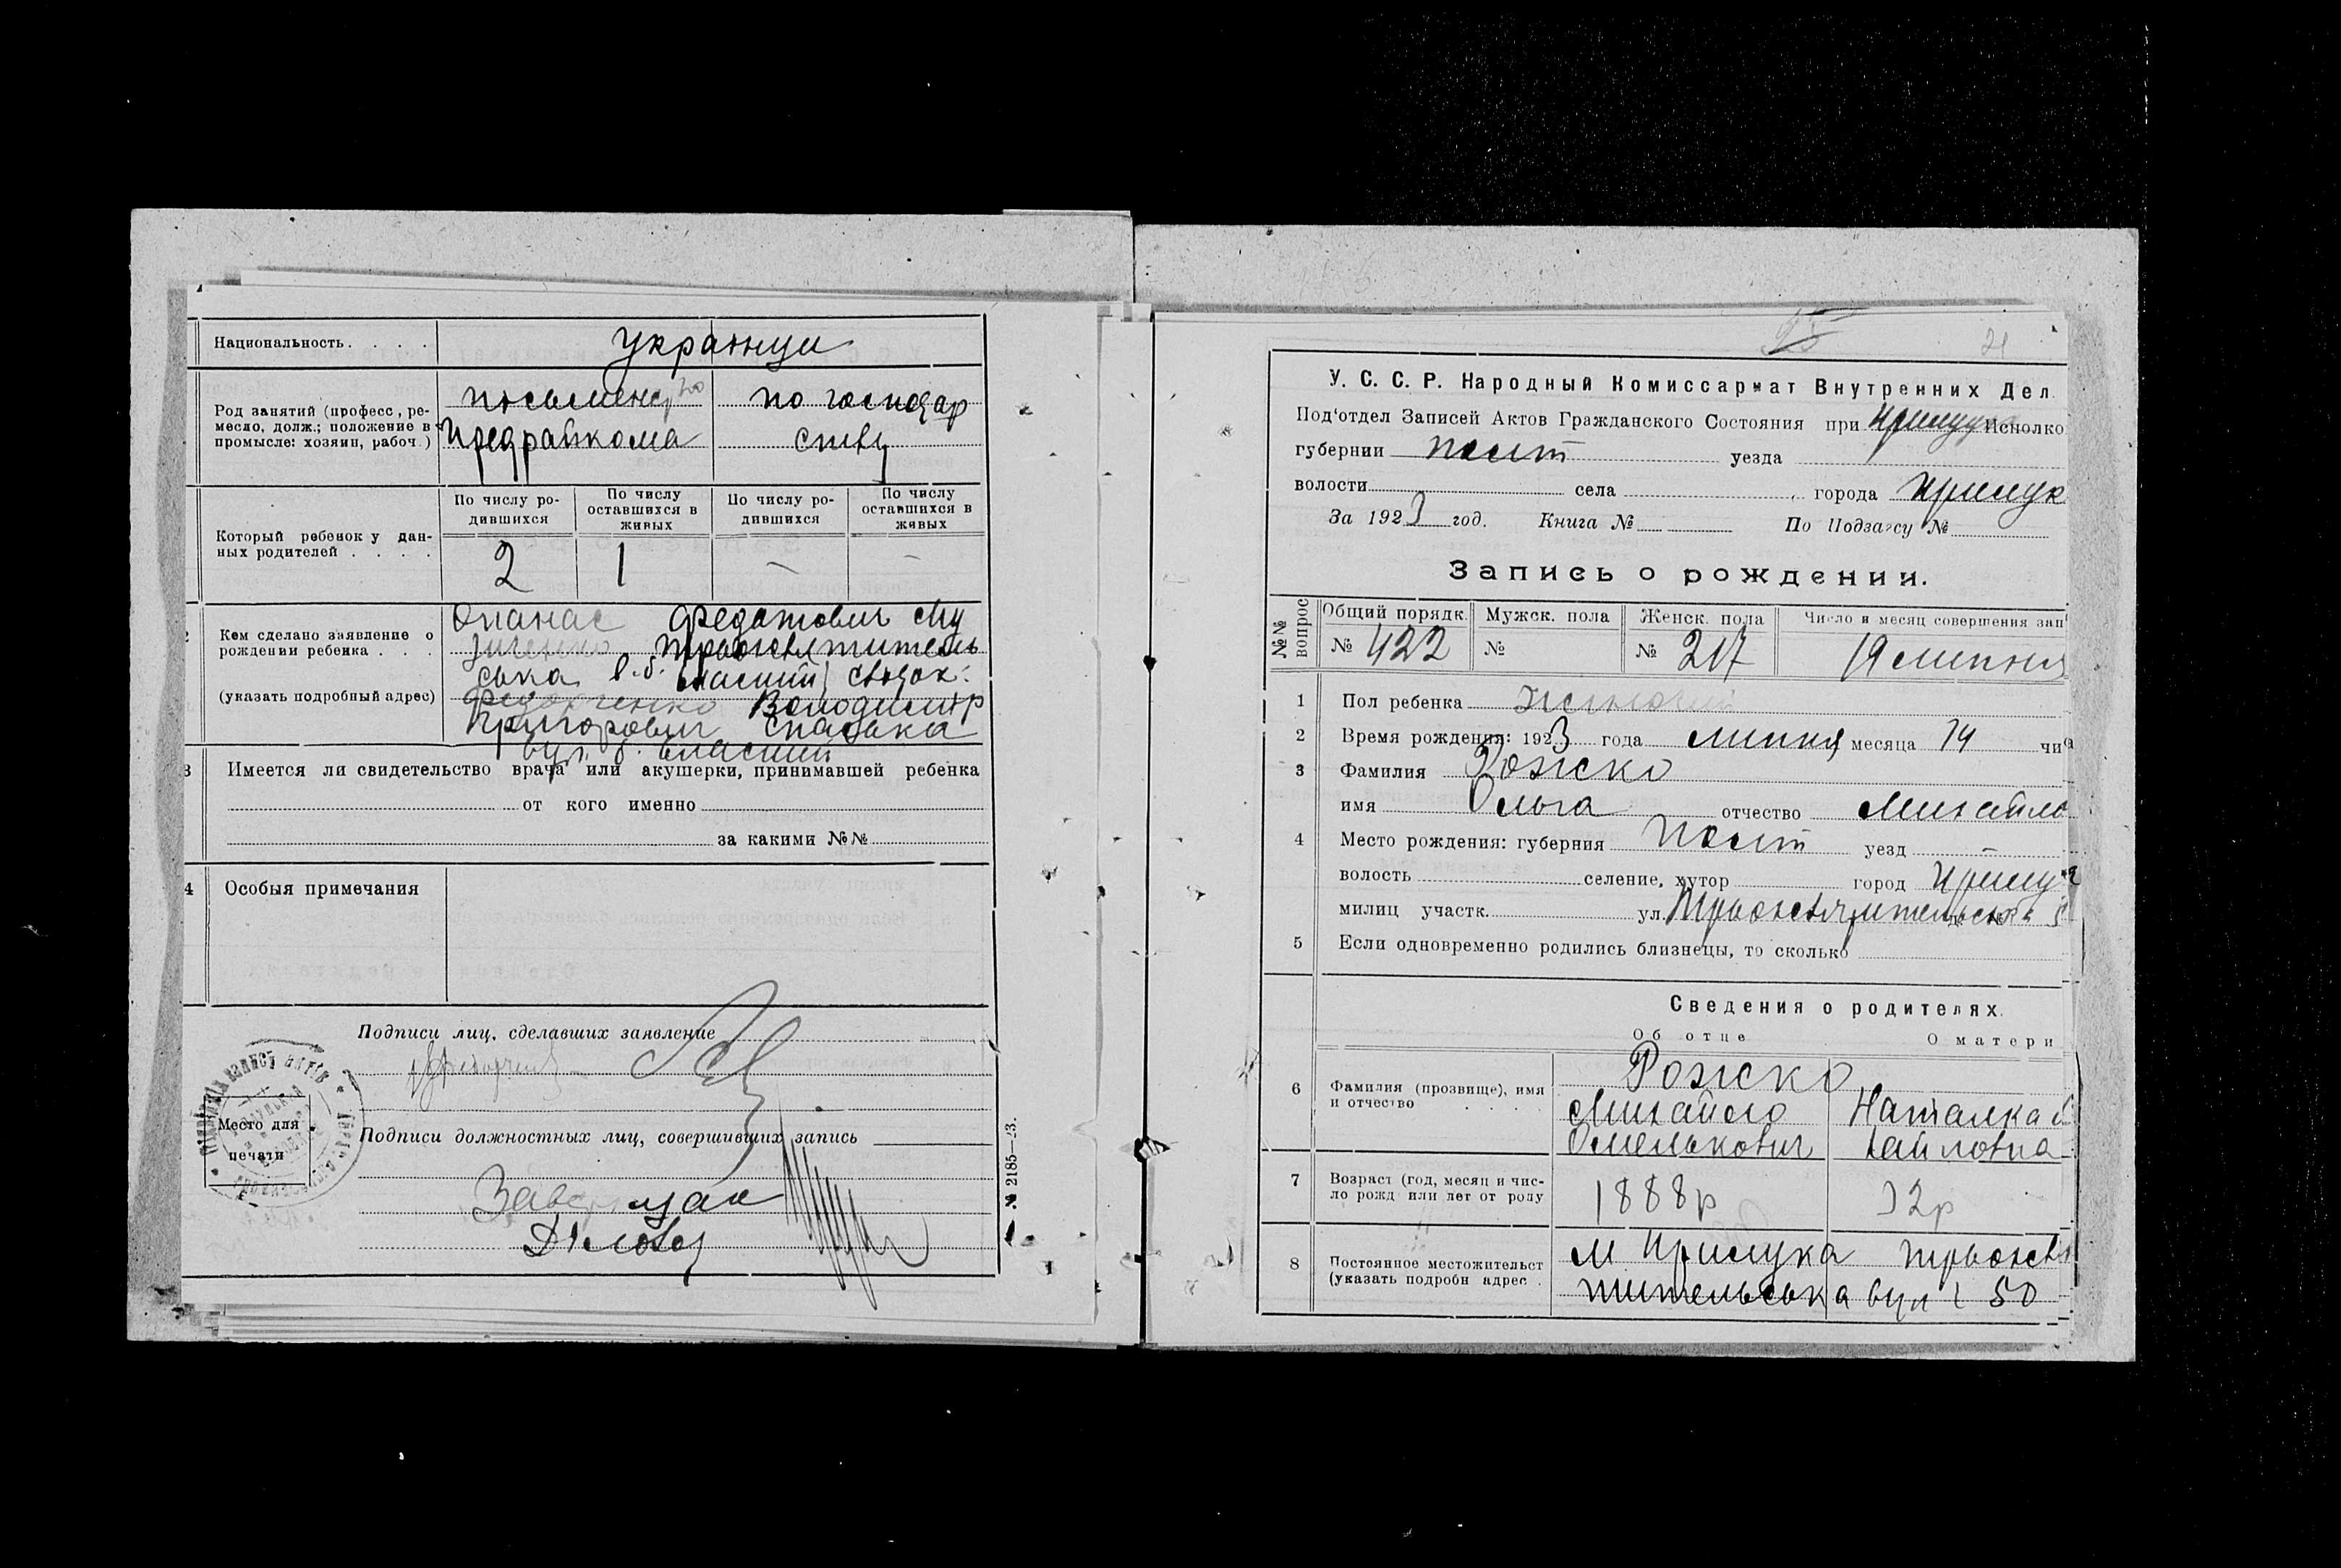 Национальность. . . . .
українци
Род занятий (професс, ре-
месло, долж.; положение в
промысле: хозяин, рабоч.)
по господар
Предрайкома
ству
Который ребенок у дан-
ных родителей . . . .
По числу ро-
дившихся
По числу
оставшихся в
живых
По числу ро-
дившихся
По числу
оставшихся в
живых
2 1 — —
Кем сделано заявление о
рождении ребенка . . .
(указать подробный адрес)
Опанас Федотович
Трьохсвятитель
ська в. б. власний свідок:
Володимир
Григорович Спаська
вул. б. власний
3 Имеется ли свидетельство врача или акушерки, принимавшей ребенка
от кого именно
за какими №№
4 Особыя примечания
Подписи лиц, сделавших заявление
Место для
печати
Подписи должностных лиц, совершивших запись
Діловод
№ 2185—23.
21
У. С. С. Р. Народный Комиссариат Внутренних Дел
Под'отдел Записей Актов Гражданского Состояния при Прилуцк Исполко
губернии Полт уезда
волости села города Прилук
За 1923 год. Книга № По Подзагсу №
Запись о рождении.
№№ вопрос
Общий порядк.
№ 422
Мужск. пола
№
Женск. пола
№ 217
Число и месяц совершения зап
19 липня
1 Пол ребенка жіночий
2 Время рождения: 1923 года липня месяца 14 чи
3 Фамилия Рожко
имя Ольга отчество Михайло
4 Место рождения: губерния Полт уезд —
волость селение, хутор город Прилук
милиц участк. ул. Трьохсвятительська
5 Если одновременно родились близнецы, то сколько
Сведения о родителях.
Об отце О матери
6 Фамилия (прозвище), имя
и отчество . . . .
Рожко
Михайло
Омелькович
Наталка М
хайловна
7 Возраст (год, месяц и чис-
ло рожд или лет от роду
1888р 32р
8 Постоянное местожительст
(указать подробн адрес .
м Прилука трьохсвя
тительська вул 50